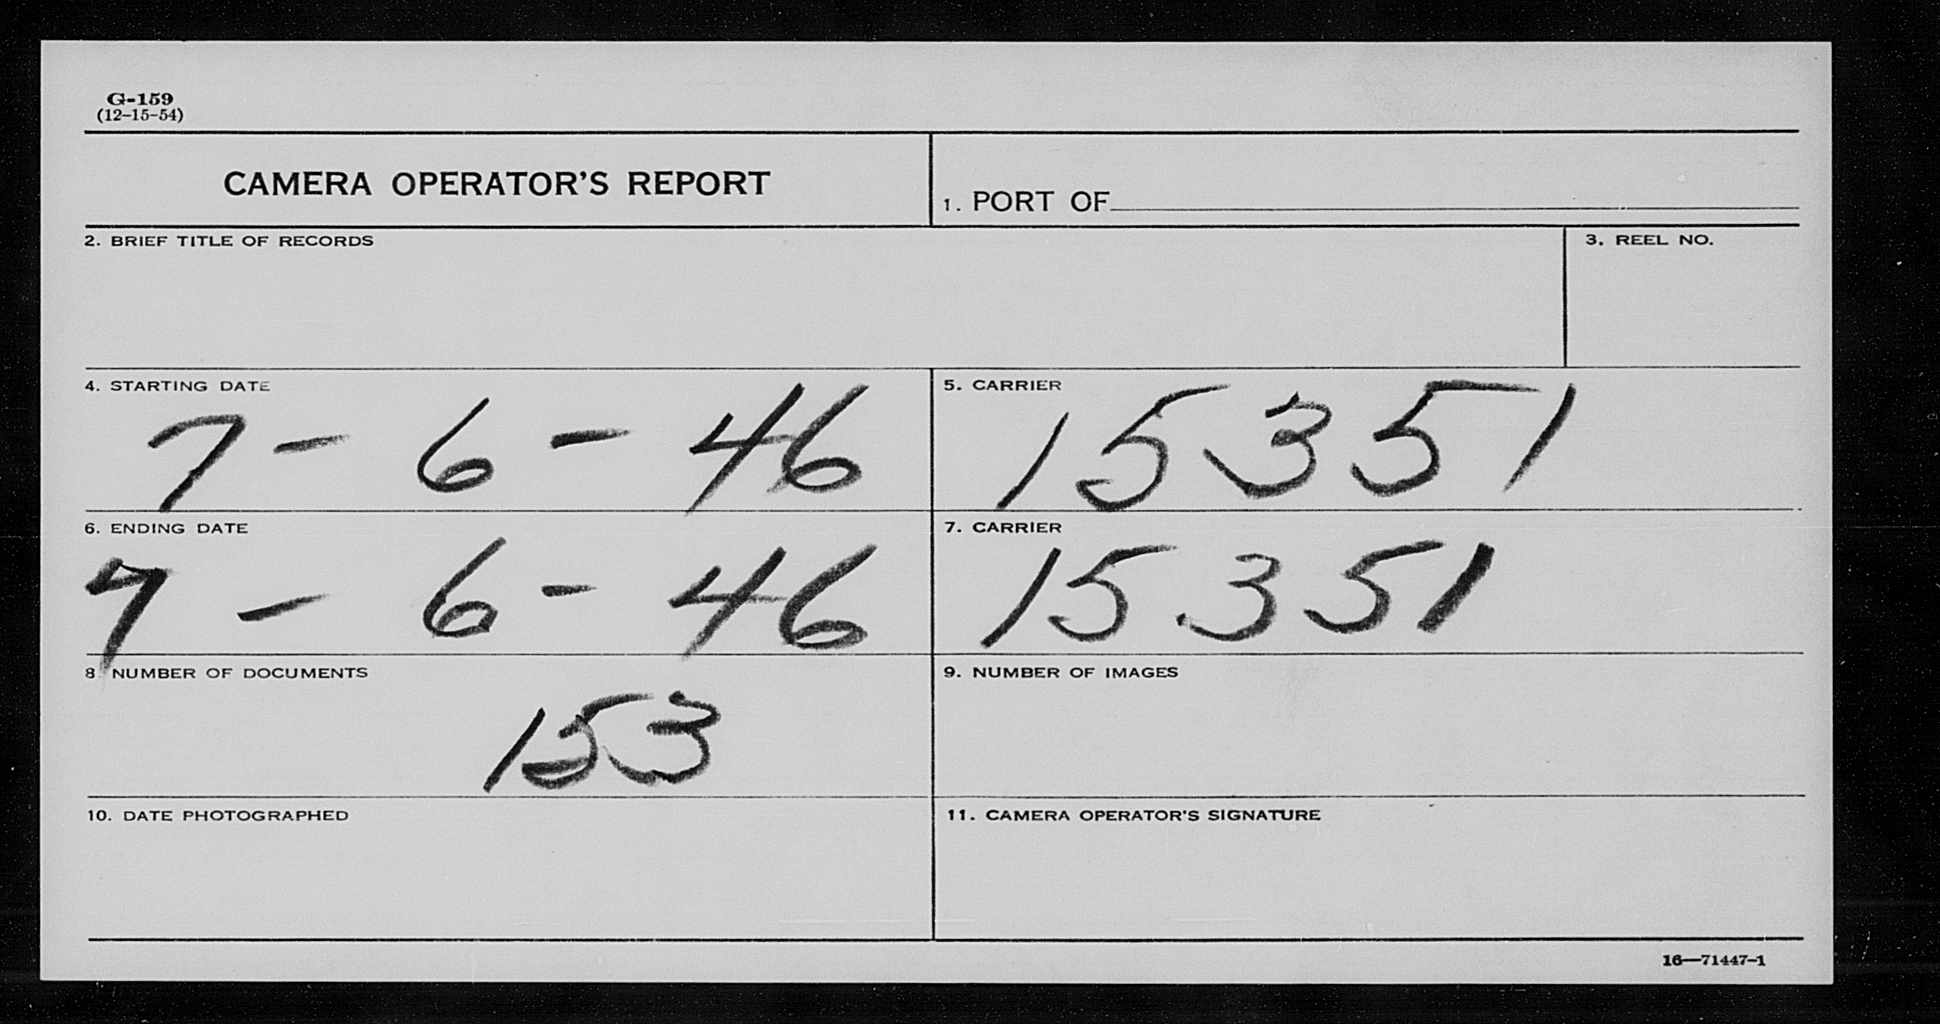 G-159
(12-15-54)
CAMERA OPERATOR'S REPORT
1. PORT OF
2. BRIEF TITLE OF RECORDS
3. REEL NO.
4. STARTING DATE
7-6-46
5. CARRIER
15351
6. ENDING DATE
7-6-46
7. CARRIER
15351
8. NUMBER OF DOCUMENTS
153
9. NUMBER OF IMAGES
10. DATE PHOTOGRAPHED
11. CAMERA OPERATOR'S SIGNATURE
16—71447-1